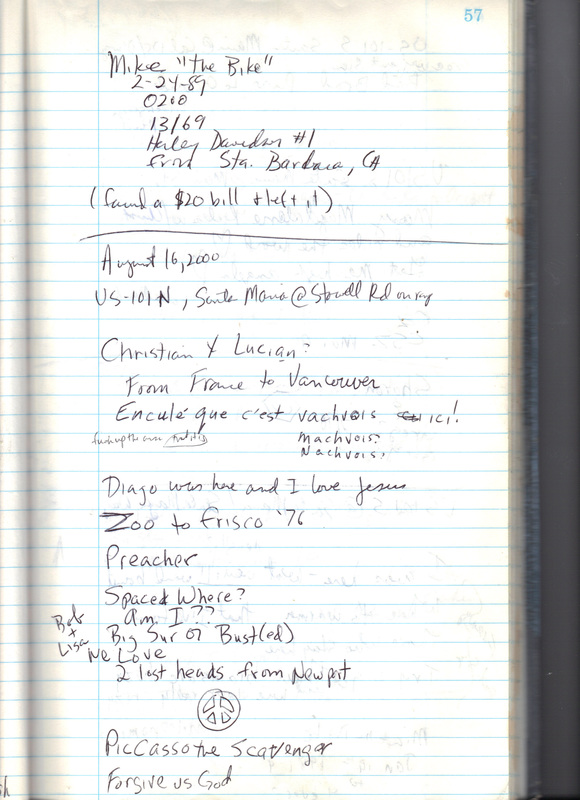 57
Mike "the Bike"
2-24-89
0200
13/69
Harley Davidson #1
from Sta. Barbara, CA
(found a $20 bill & left it)
August 16, 2000
US-101 N, Santa Maria @ Stowell Rd onrmp
Christian & Lucian:
From France to Vancouver
Enculé que c'est vachvois ici!
Machvois?
Nachvois?
Diago was here and I love Jesus
Zoo to Frisco '76
Preacher
Spaced Where?
Am I??
Big Sur or Bust(ed)
Bob + Lisa
We Love
2 lost heads from Newport
PicCasso the Scavenger
Forgive us God